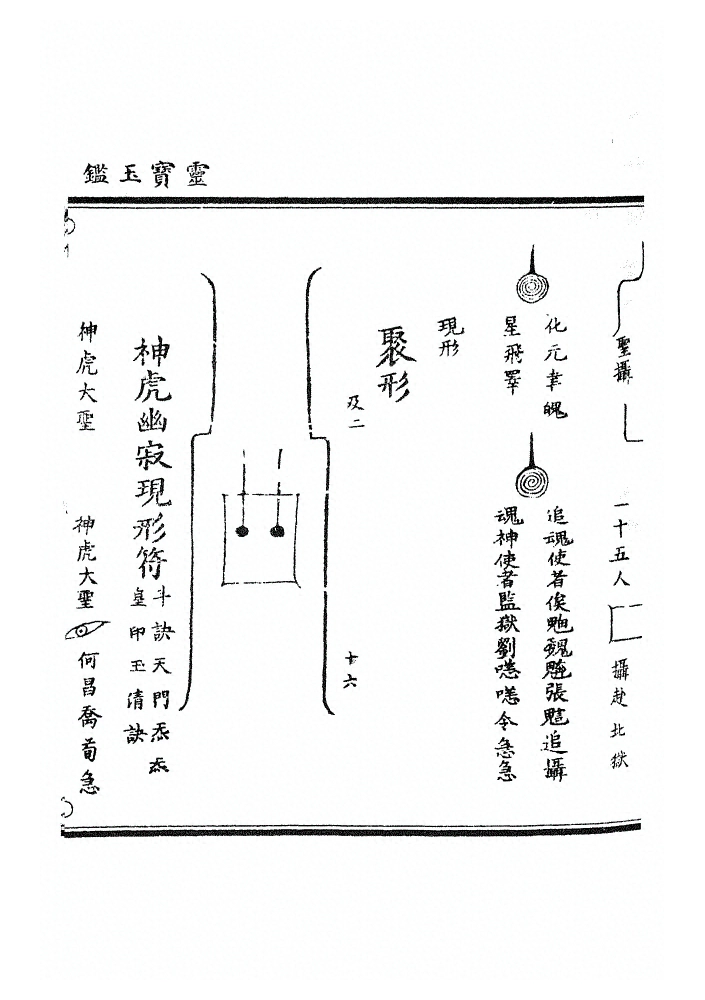 靈寶玉鑑
聖攝
一十五人
攝赴北獄
化元
星飛
追魂使者
張
追攝
魂神使者監獄劉
令急急
現形
聚形
及二
十六
神虎幽寂現形符
斗訣天門炁炁
皇印玉清訣
神虎大聖
神虎大聖
何昌喬荀急